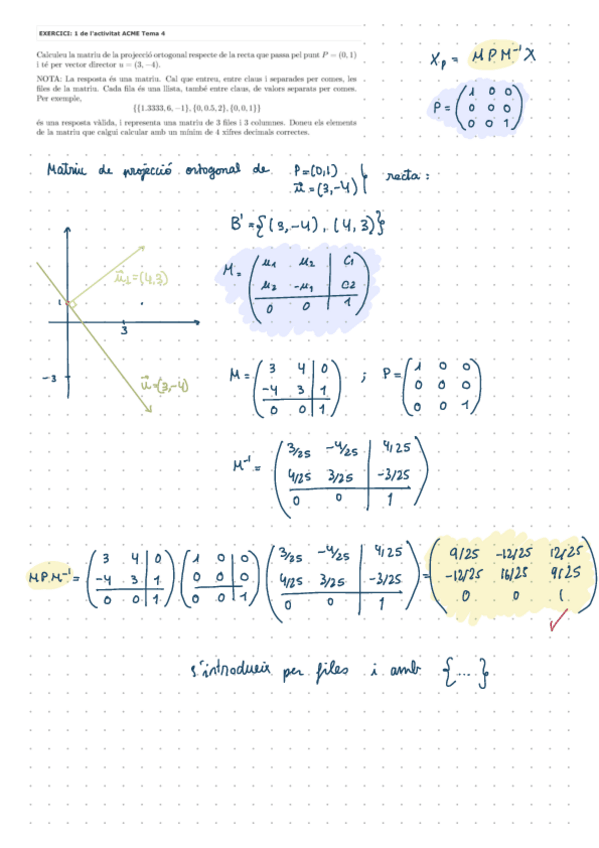 EXERCICI: 1 de l'activitat ACME Tema 4
Calculeu la matriu de la projecció ortogonal respecte de la recta que passa pel punt P = (0, 1)
i té per vector director u = (3, −4).
NOTA: La resposta és una matriu. Cal que entreu, entre claus i separades per comes, les
files de la matriu. Cada fila és una llista, també entre claus, de valors separats per comes.
Per exemple,
{{1.3333, 6, −1}, {0, 0.5, 2}, {0, 0, 1}}
és una resposta vàlida, i representa una matriu de 3 files i 3 columnes. Doneu els elements
de la matriu que calgui calcular amb un mínim de 4 xifres decimals correctes.
Xp = M P M⁻¹ X
P = ( 1 0 0
0 0 0
0 0 1 )
Matriu de projecció ortogonal de P=(0,1) recta:
u⃗ = (3,-4)
B' = {(3,-4), (4,3)}
M = ( u1 u2 C1
u2 -u1 C2
0 0 1 )
u⃗⊥=(4,3)
1
3
-3
u⃗=(3,-4)
M = ( 3 4 0
-4 3 1
0 0 1 ) ; P = ( 1 0 0
0 0 0
0 0 1 )
M⁻¹ = ( 3/25 -4/25 4/25
4/25 3/25 -3/25
0 0 1 )
M P M⁻¹ = ( 3 4 0 ) ( 1 0 0 ) ( 3/25 -4/25 4/25 ) = ( 9/25 -12/25 12/25 )
-4 3 1 0 0 0 4/25 3/25 -3/25 -12/25 16/25 9/25
0 0 1 0 0 1 0 0 1 0 0 1
s'introdueix per files i amb {...}